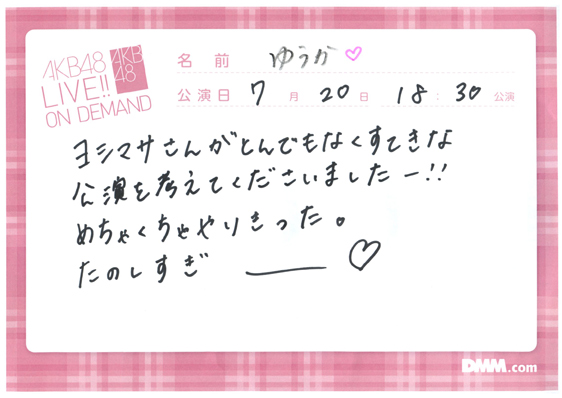 AKB48
LIVE!!
ON DEMAND
AKB
48
名前 ゆうか♡
公演日 7月 20日 18:30公演
ヨシマサさんがとんでもなくすてきな
公演を考えてくださいましたー!!
めちゃくちゃやりきった。
たのしすぎ ―― ♡
DMM.com